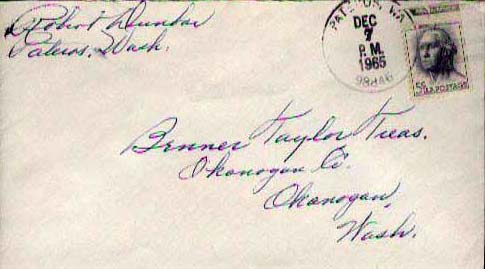 Robert Dunbar
Pateros, Wash.
DEC
7
P.M.
1965
5¢
U.S. POSTAGE
Benner Taylor Treas.
Okanogan Co.
Okanogan,
Wash.